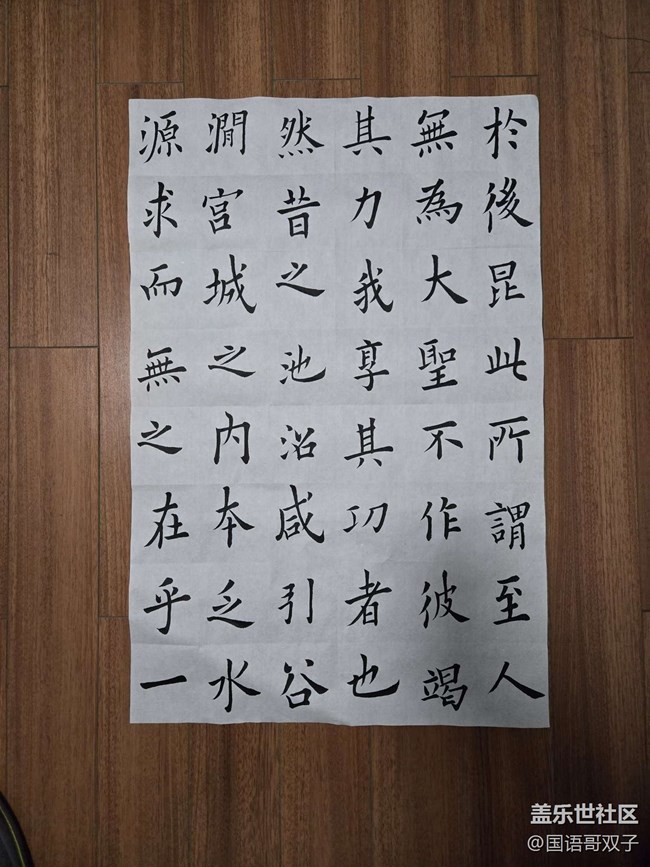 於後昆此所謂至人
無為大聖不作彼竭
其力我享其功者也
然昔之池沼咸引谷
澗宮城之内本乏水
源求而無之在乎一
盖乐世社区
@国语哥双子